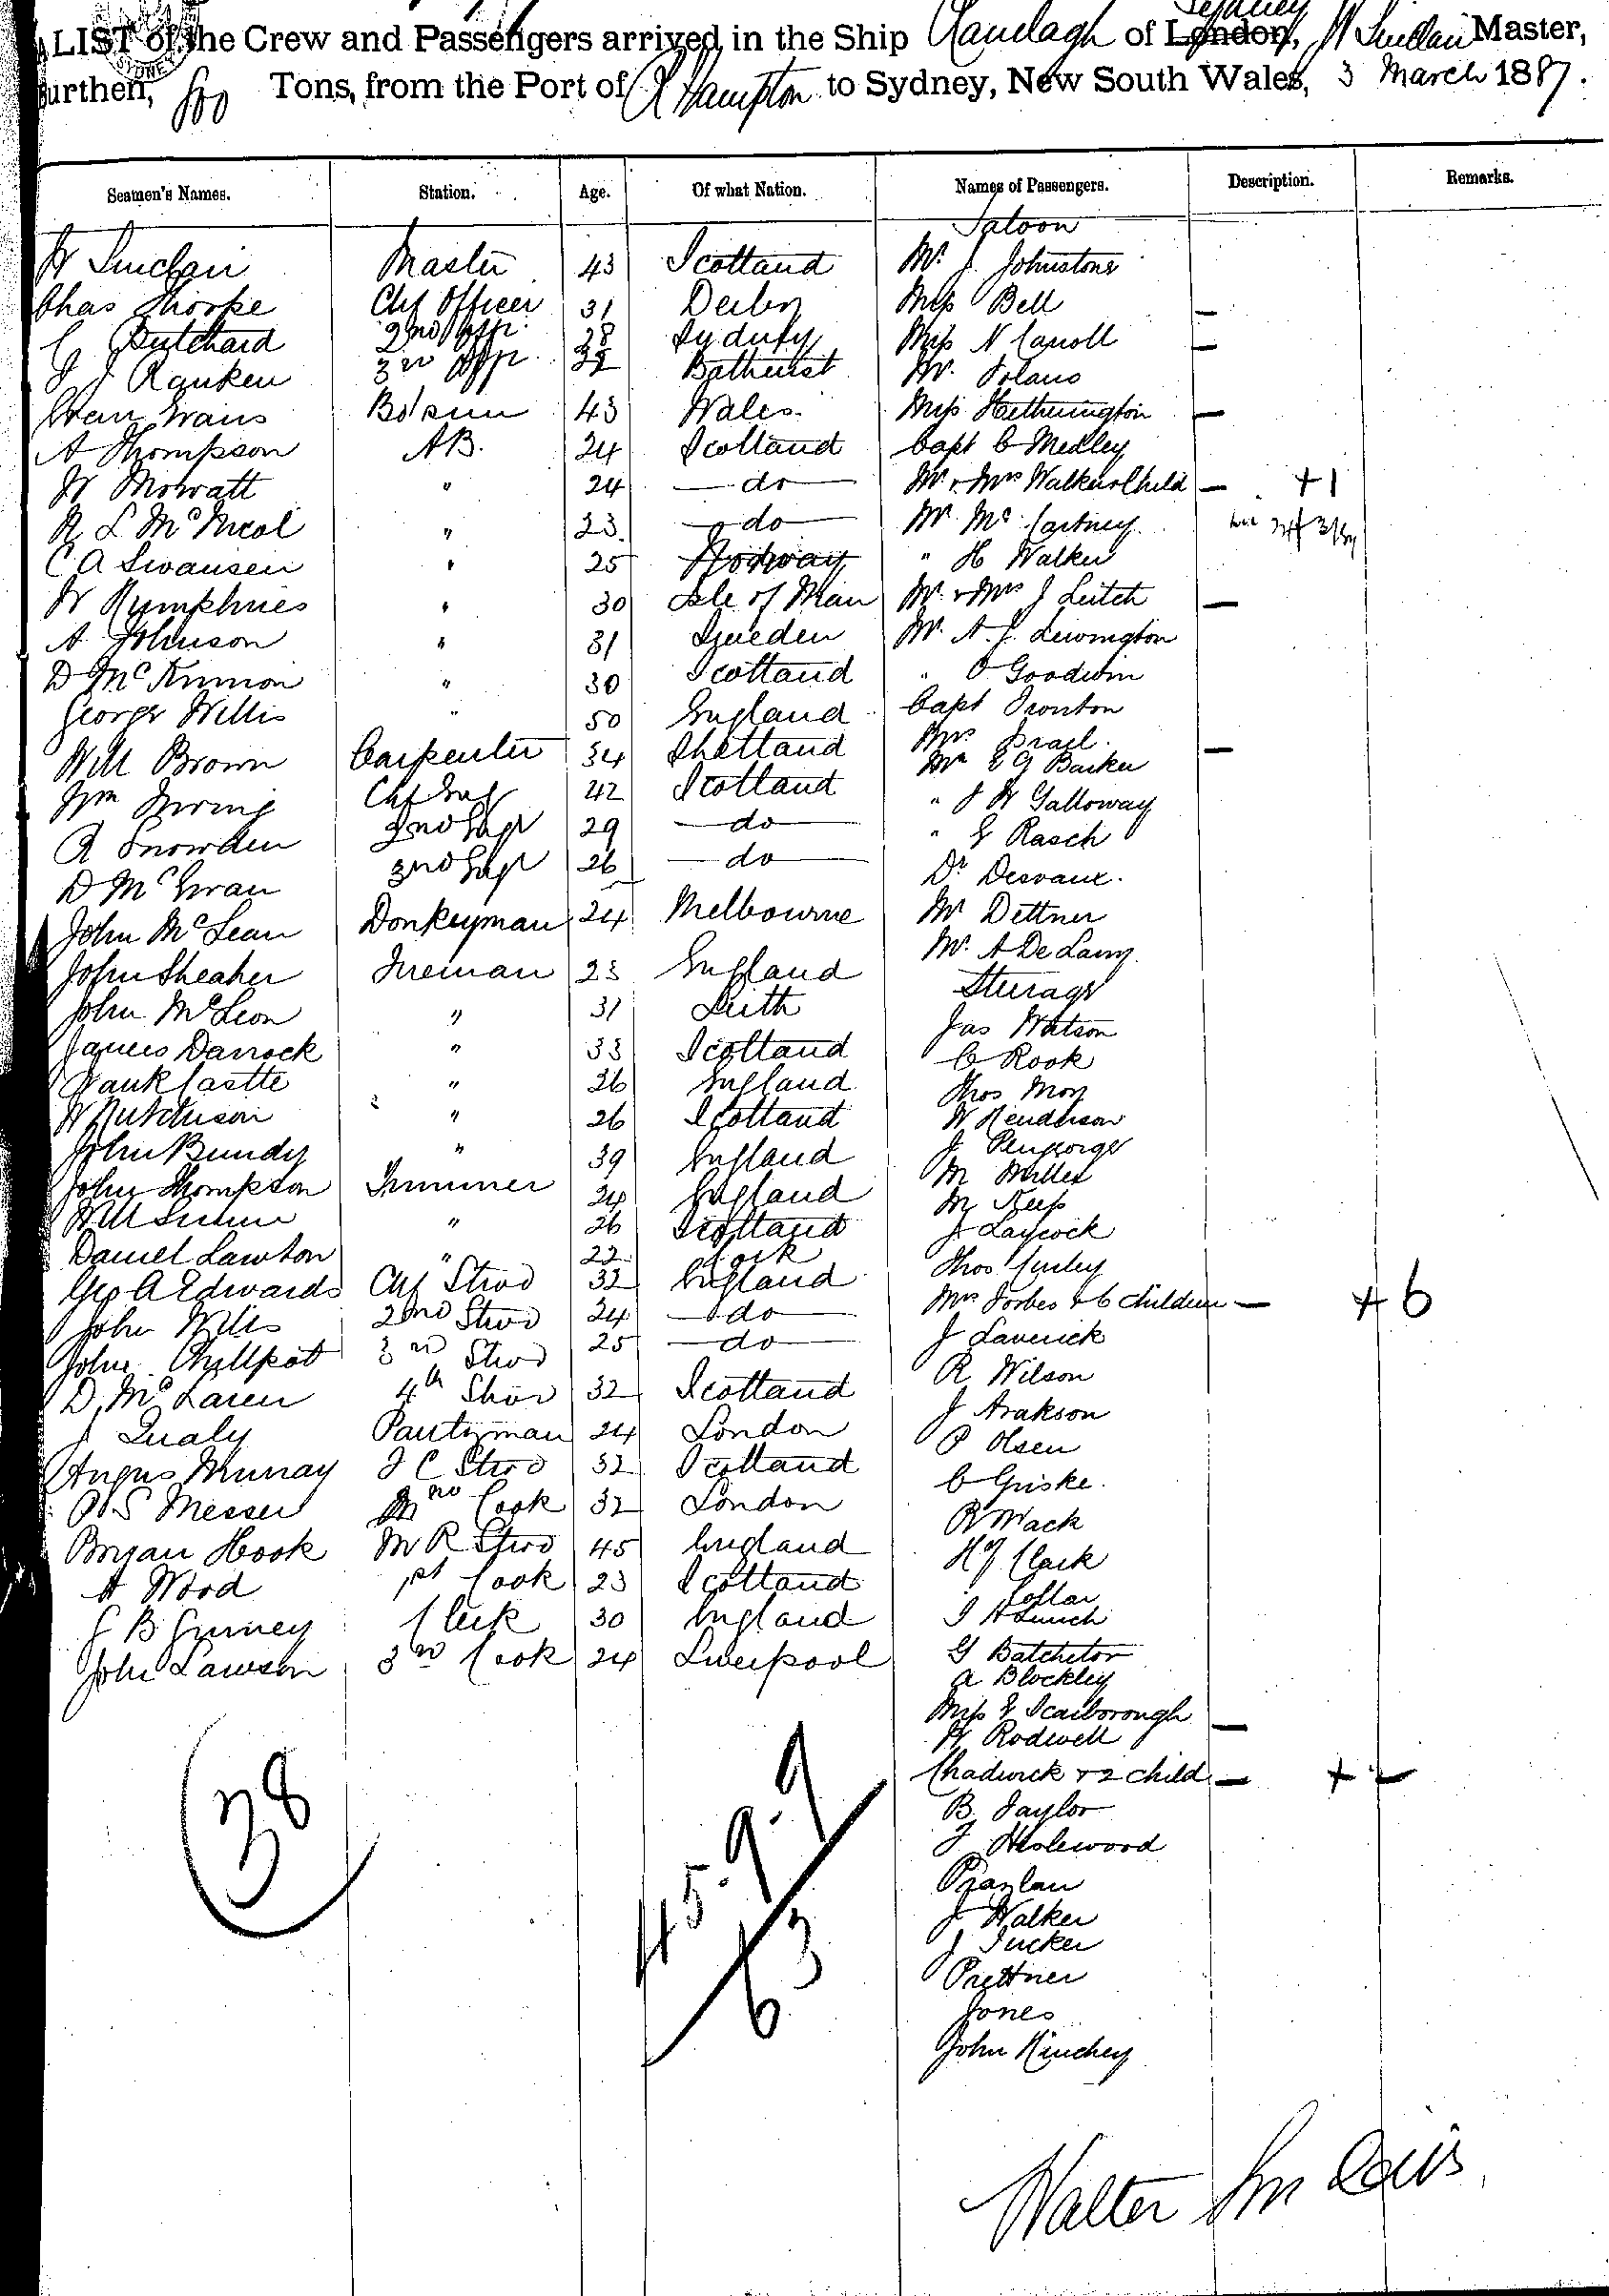 LIST of the Crew and Passengers arrived in the Ship Ranelagh of London, Sydney, W Sinclair Master,
urthen, 500 Tons, from the Port of R Hampton to Sydney, New South Wales, 3 March 1887.
Seamen's Names. Station. Age. Of what Nation. Names of Passengers. Description. Remarks.
Saloon
W Sinclair Master 43 Scotland Mr J Johnstone
Chas Thorpe Chf Officer 31 Miss Bell
C Butchard 2nd Offr 28 Sydney Miss N Caroll
J J Ranken 3rd Offr Bathurst Mr Solano
Evan Evans Bo'sun 43 Wales Miss Hetherington
A Thompson AB. 24 Scotland Capt C Medley
W Mowatt " 24 do Mr & Mrs Walker & Child — + 1
R L McNicol " 23 do Mr McCartney
C A Swansen " 25 Norway " H Walker
W Humphries " 30 Isle of Man Mr & Mrs J Leitch
A Johnson " 31 Sweden Mr A J Lewington
D McKinnon " 30 Scotland " O Goodwin
George Willis " 50 England Capt Trouton
Will Brown Carpenter 34 Shetland Mrs Israel
Mr E G Barker
Wm Irving Chf Eng 42 Scotland " J W Galloway
R Snowden 2nd Engr 29 do " G Rasch
D McEwan 3rd Engr 26 do Dr Desvaux
John McLean Donkeyman 24 Melbourne Mr Dettner
Mr A De Lany
John Sheaher Fireman 23 England Steerage
John McLeon " 31 Leith Jas Watson
James Darrock " 33 Scotland C Rook
Frank Castle " 26 England Thos Moy
W Hutchison " 26 Scotland W Henderson
John Bundy " 39 England J
John Thompson Trimmer 24 England M Miller
" 26 Scotland M Keep
J Laycock
Daniel Lawton " 22 Cork Thos Curley
Geo A Edwards Chf Stwd 32 England Mrs Forbes & 6 children — + 6
John Willis 2nd Stwd 24 do J Laverick
John Phillpot 3rd Stwd 25 do R Wilson
D McLaren 4th Stwd 32 Scotland J Arakson
J Qualy Pantryman 24 London P Olsen
Angus Murray F C Stwd 32 Scotland C Griske
W S Messer 2nd Cook 32 London R Mack
Bryan Hook M R Stwd 45 England H J Clark
A Wood 1st Cook 23 Scotland Lollar
G B Gurney Clerk 30 England J H Lunch
John Lawson 3rd Cook 24 Liverpool G Batchelor
A Blockley
Miss E Scarborough
H Rodwell
Chadwick & 2 child — + 2
B Taylor
J Heslewood
Prazlau
J Walker
J Tucker
Prettner
Jones
John Hinchey
38
45.9.9
63
Walter Sinclair